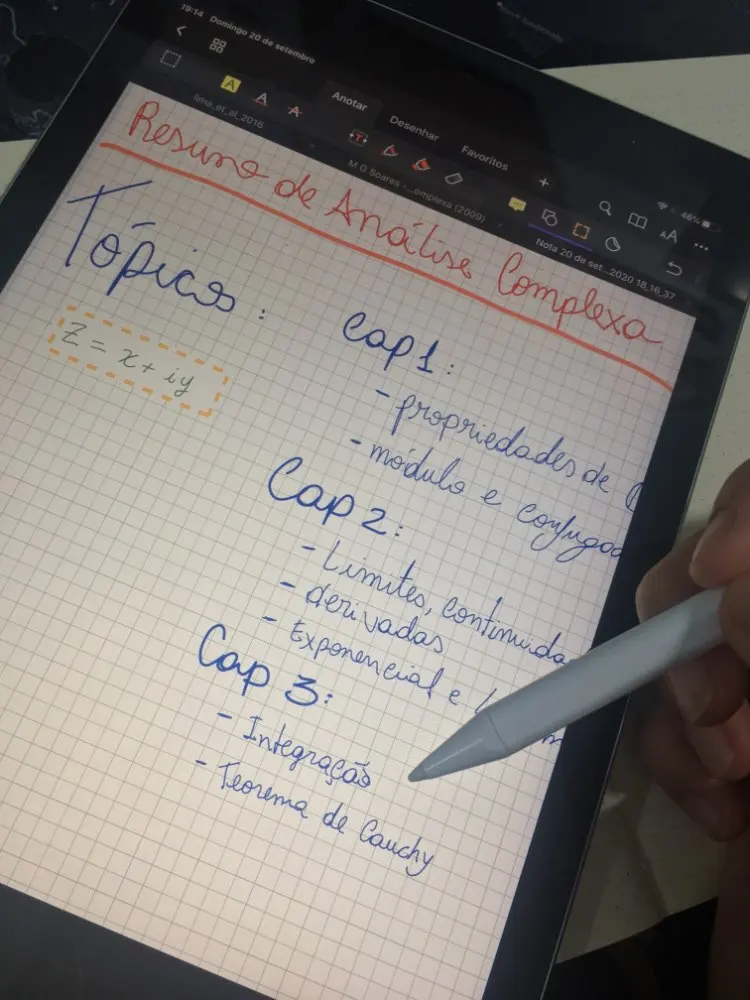 19:14 Domingo 20 de setembro
46%
Anotar
Desenhar
Favoritos
lima_et_al_2016
M G Soares - ...omplexa (2009)
Nota 20 de set...2020 18_16_37
Resumo de Análise Complexa
Tópicos:
Z = x + iy
Cap 1:
- propriedades de
- módulo e conjugad
Cap 2:
- Limites, continuida
- derivadas
- Exponencial e
Cap 3:
- Integração
- Teorema de Cauchy